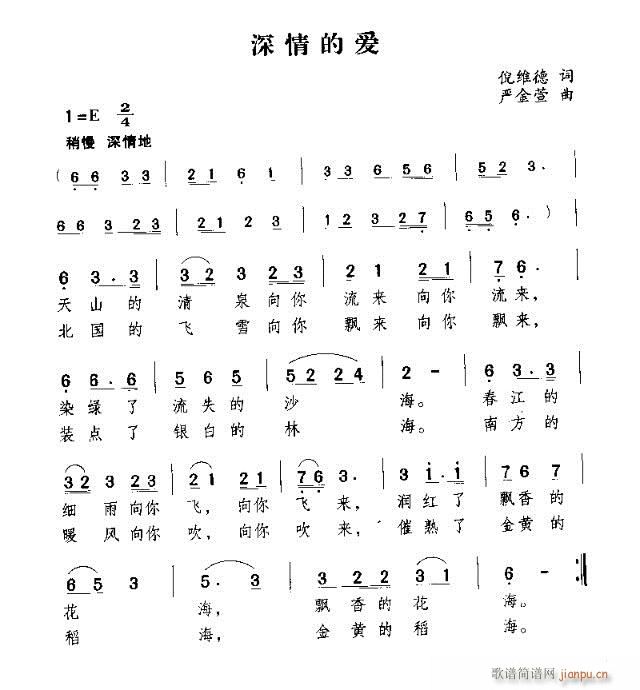 深情的爱
倪维德 词
1=E 2/4
严金萱 曲
稍慢 深情地
( 6 6 3 3 | 2 1 6 1 | 3 3 6 5 6 | 5 2 3 · |
6 6 3 2 3 | 2 1 2 3 | 1 2 3 2 7 | 6 5 6 · )
6 3 · 3 | 3 2 3 2 3 | 2 1 2 1 | 7 6 · |
天山的清泉向你流来向你流来，
北国的飞雪向你飘来向你飘来，
6 6 · 6 | 5 6 5 | 5 2 2 4 | 2 - | 6 3 · 3
染绿了流失的沙海。春江的
装点了银白的林海。南方的
3 2 3 2 3 | 2 1 2 1 | 7 6 3 · | 3 i · i | 7 6 7
细雨向你飞，向你飞来，润红了飘香的
暖风向你吹，向你吹来，催熟了金黄的
6 5 3 | 5 · 3 | 3 2 2 2 | 3 1 | 6 - :||
花海，飘香的花海。
稻海，金黄的稻海。
歌谱简谱网 jianpu.cn